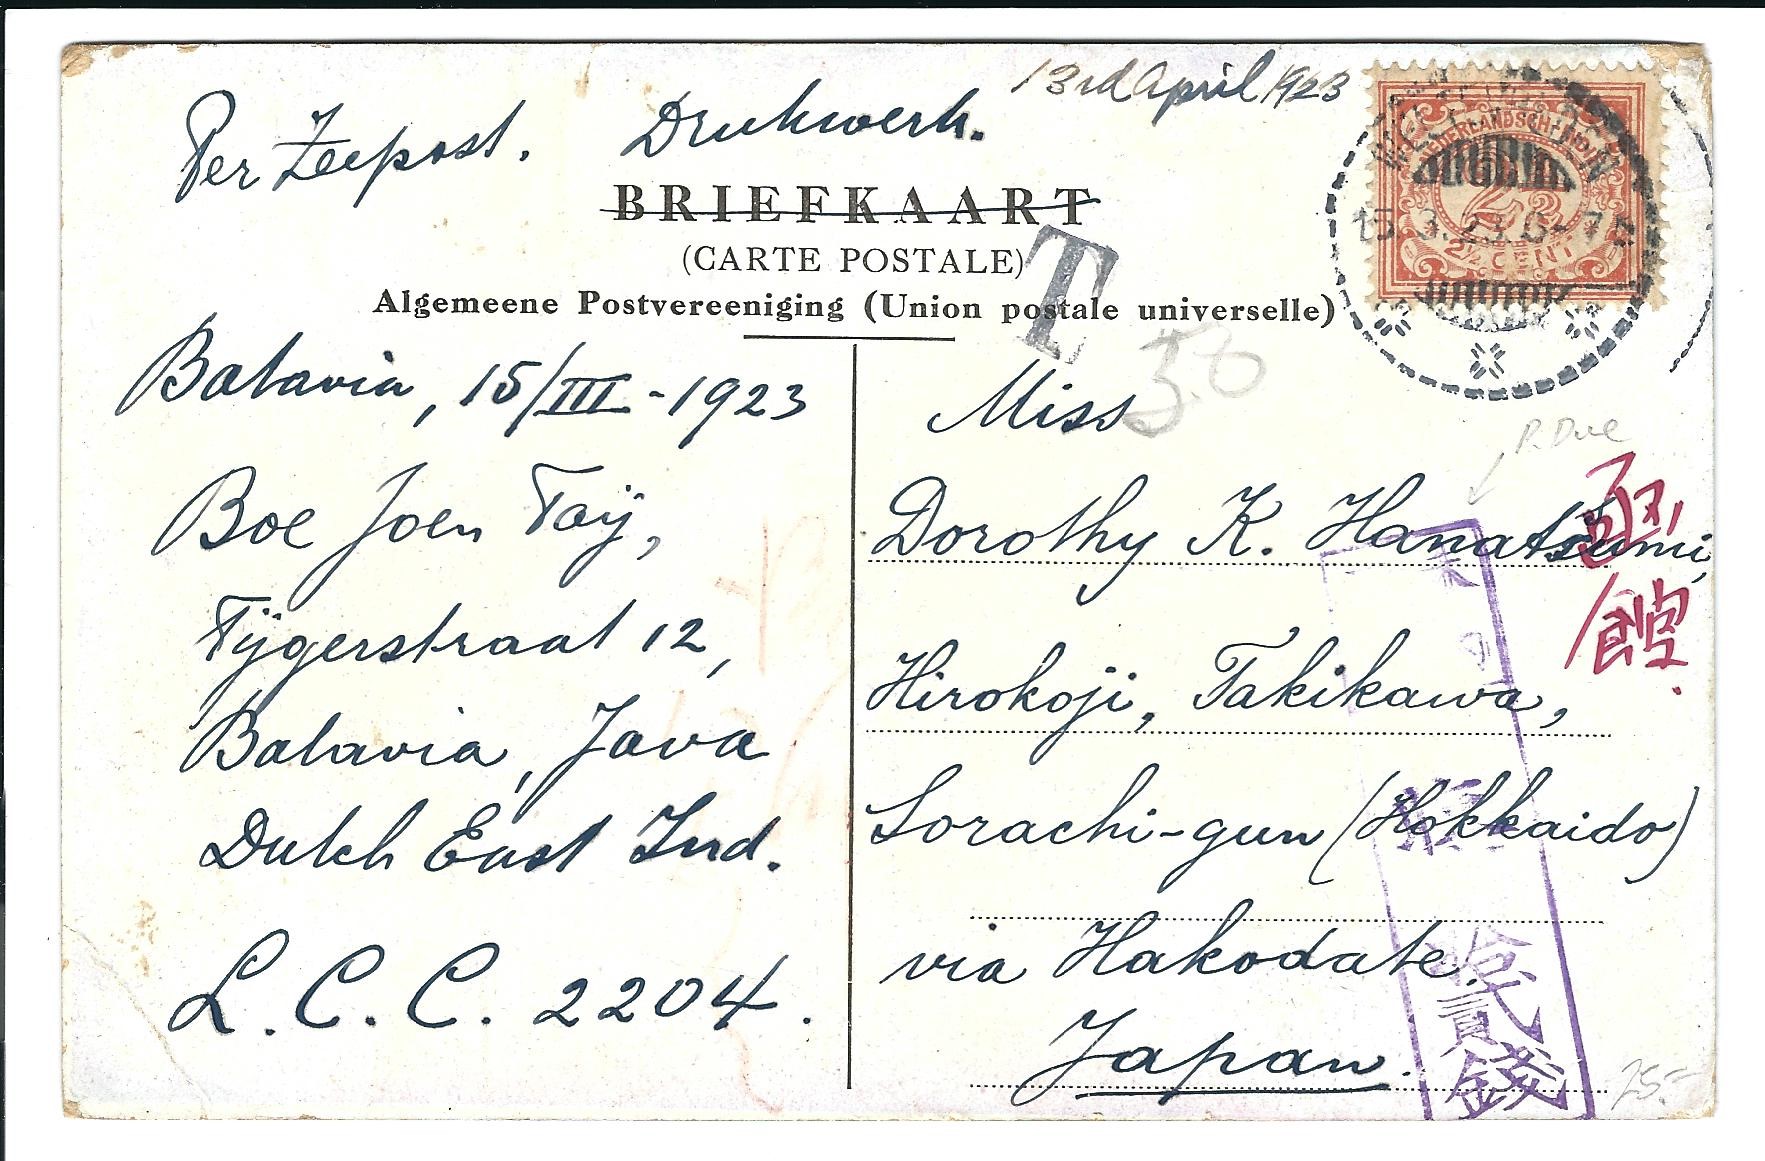 13rd April 1923
Per Zeepost. Drukwerk.
BRIEFKAART
(CARTE POSTALE)
Algemeene Postvereeniging (Union postale universelle)
T
NEDERLANDSCH-INDIË
2½
2½ CENT
WELTEVREDEN
15.3.23.6-7
Batavia, 15/III-1923
Boe Joen Taÿ,
Tÿgerstraat 12,
Batavia, Java
Dutch East Ind.
L.C.C. 2204.
50
P. Due
Miss
Dorothy K. Hanatsumi,
Hirokoji, Takikawa,
Sorachi-gun (Hokkaido)
via Hakodate
Japan.
函
館
拾貳錢
25.-